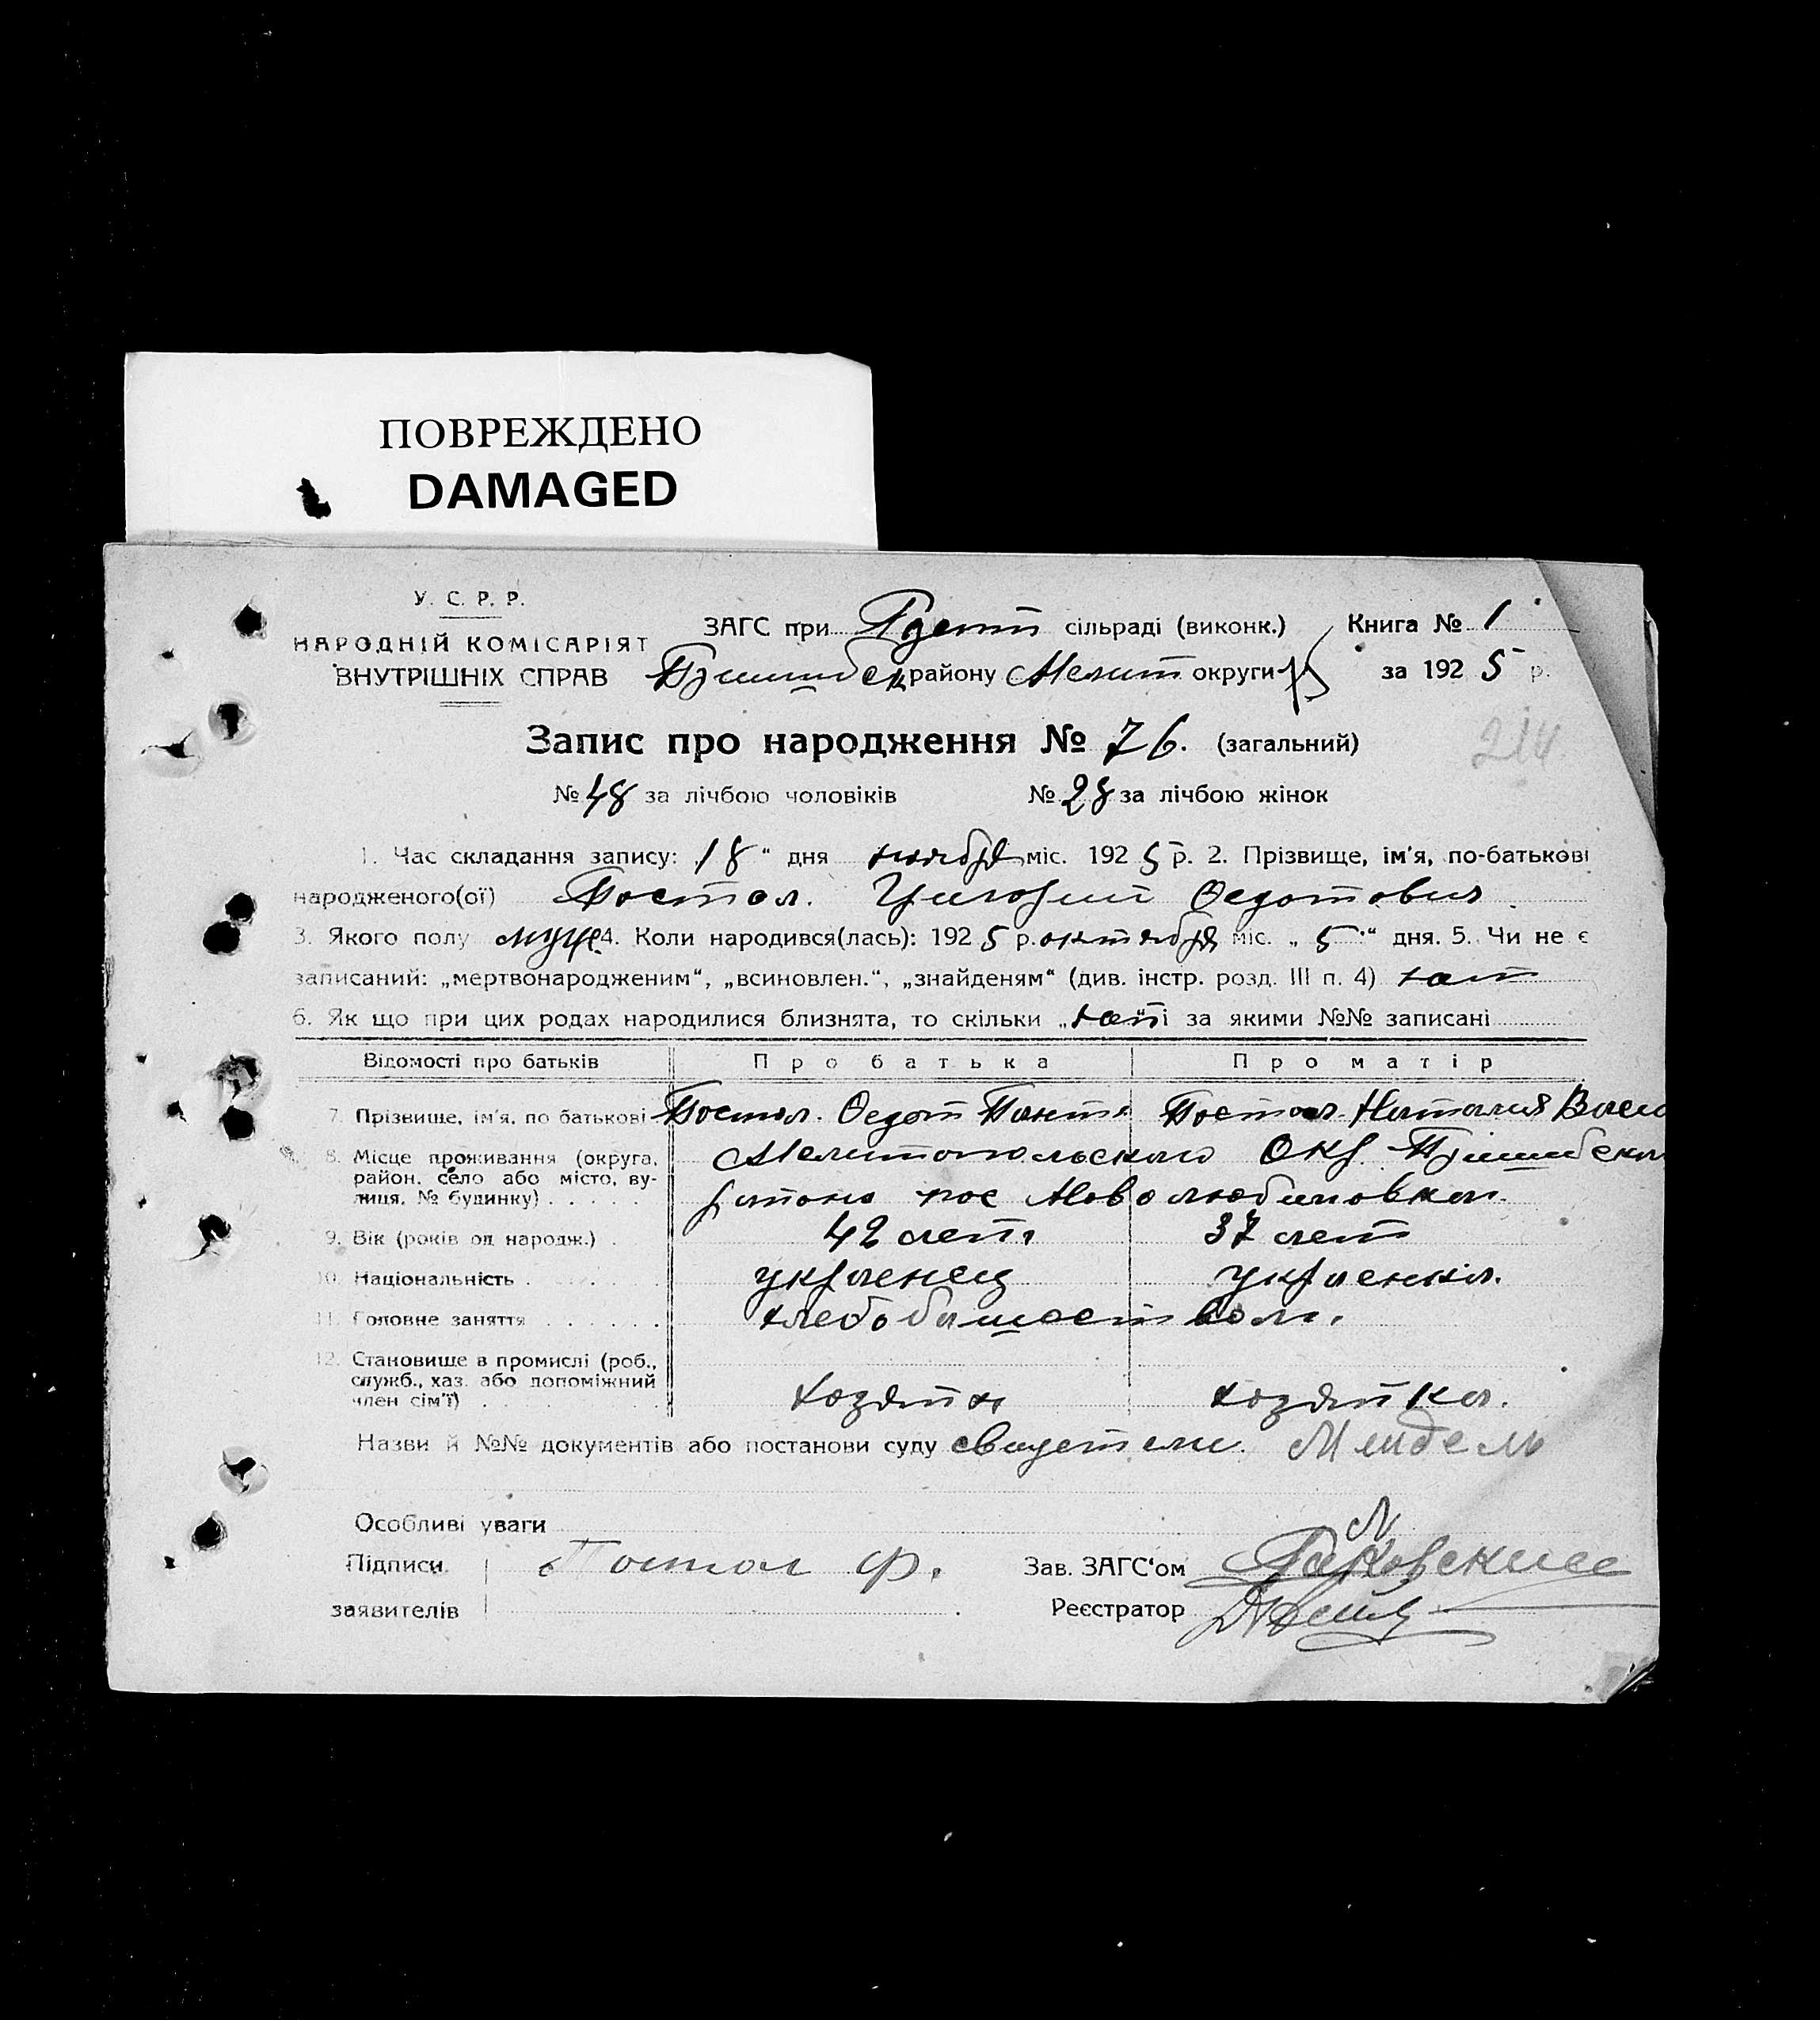 ПОВРЕЖДЕНО
DAMAGED
У. С. Р. Р.
НАРОДНІЙ КОМІСАРІЯТ
ВНУТРІШНІХ СПРАВ
ЗАГС при сільраді (виконк.) Книга № 1
Пришибск району Мелит округи за 1925 р.
Запис про народження № 76. (загальний)
214
№ 48 за лічбою чоловіків № 28 за лічбою жінок
1. Час складання запису: 18 " дня ноября міс. 1925 р. 2. Прізвище, ім'я, по-батькові
народженого(ої) Постол. Григорий Федотович
3. Якого полу муж 4. Коли народився(лась): 1925 р. октября міс. „ 5 " дня. 5. Чи не є
записаний: „мертвонародженим“, „всиновлен.“, „знайденям“ (див. інстр. розд. III п. 4) нет
6. Як що при цих родах народилися близнята, то скільки „ нет і за якими №№ записані
Відомості про батьків Про батька Про матір
7. Прізвище, ім'я, по батькові Постол. Федот Пант Постол. Наталия Васи
8. Місце проживання (округа, район, село або місто, вулиця, № будинку) Мелитопольского Окр Пришибскаг
района пос Новолюбимовка
9. Вік (років од народж.) 42 лет 37 лет
10. Національність украенец украенка.
11. Головне заняття хлебопашеством.
12. Становище в промислі (роб.,
служб., хаз. або допоміжний
член сім'ї) хозяин хозяйка.
Назви й №№ документів або постанови суду свидетели.
Особливі уваги
Підписи Постол Ф. Зав. ЗАГС'ом
заявителів Реєстратор